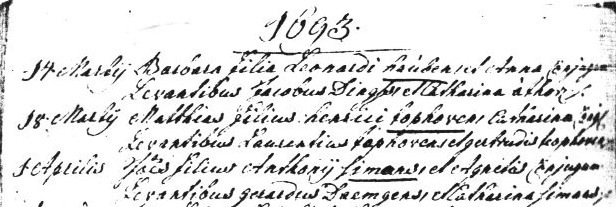 1693.
14 Martij Barbara filia Leonardi haubens et Anna Conjugum
Levantibus Jacobus Dings et Catharina
18 Martij Matthias filius henrici fophovens Catharina Conj
Levantibus Laurentius fophovens et gertrudis fophoven
4 Aprilis Jões filius Anthonij simans et Agnetis Conjugum
Levantibus gerardus Daemgens, Catharina simans,